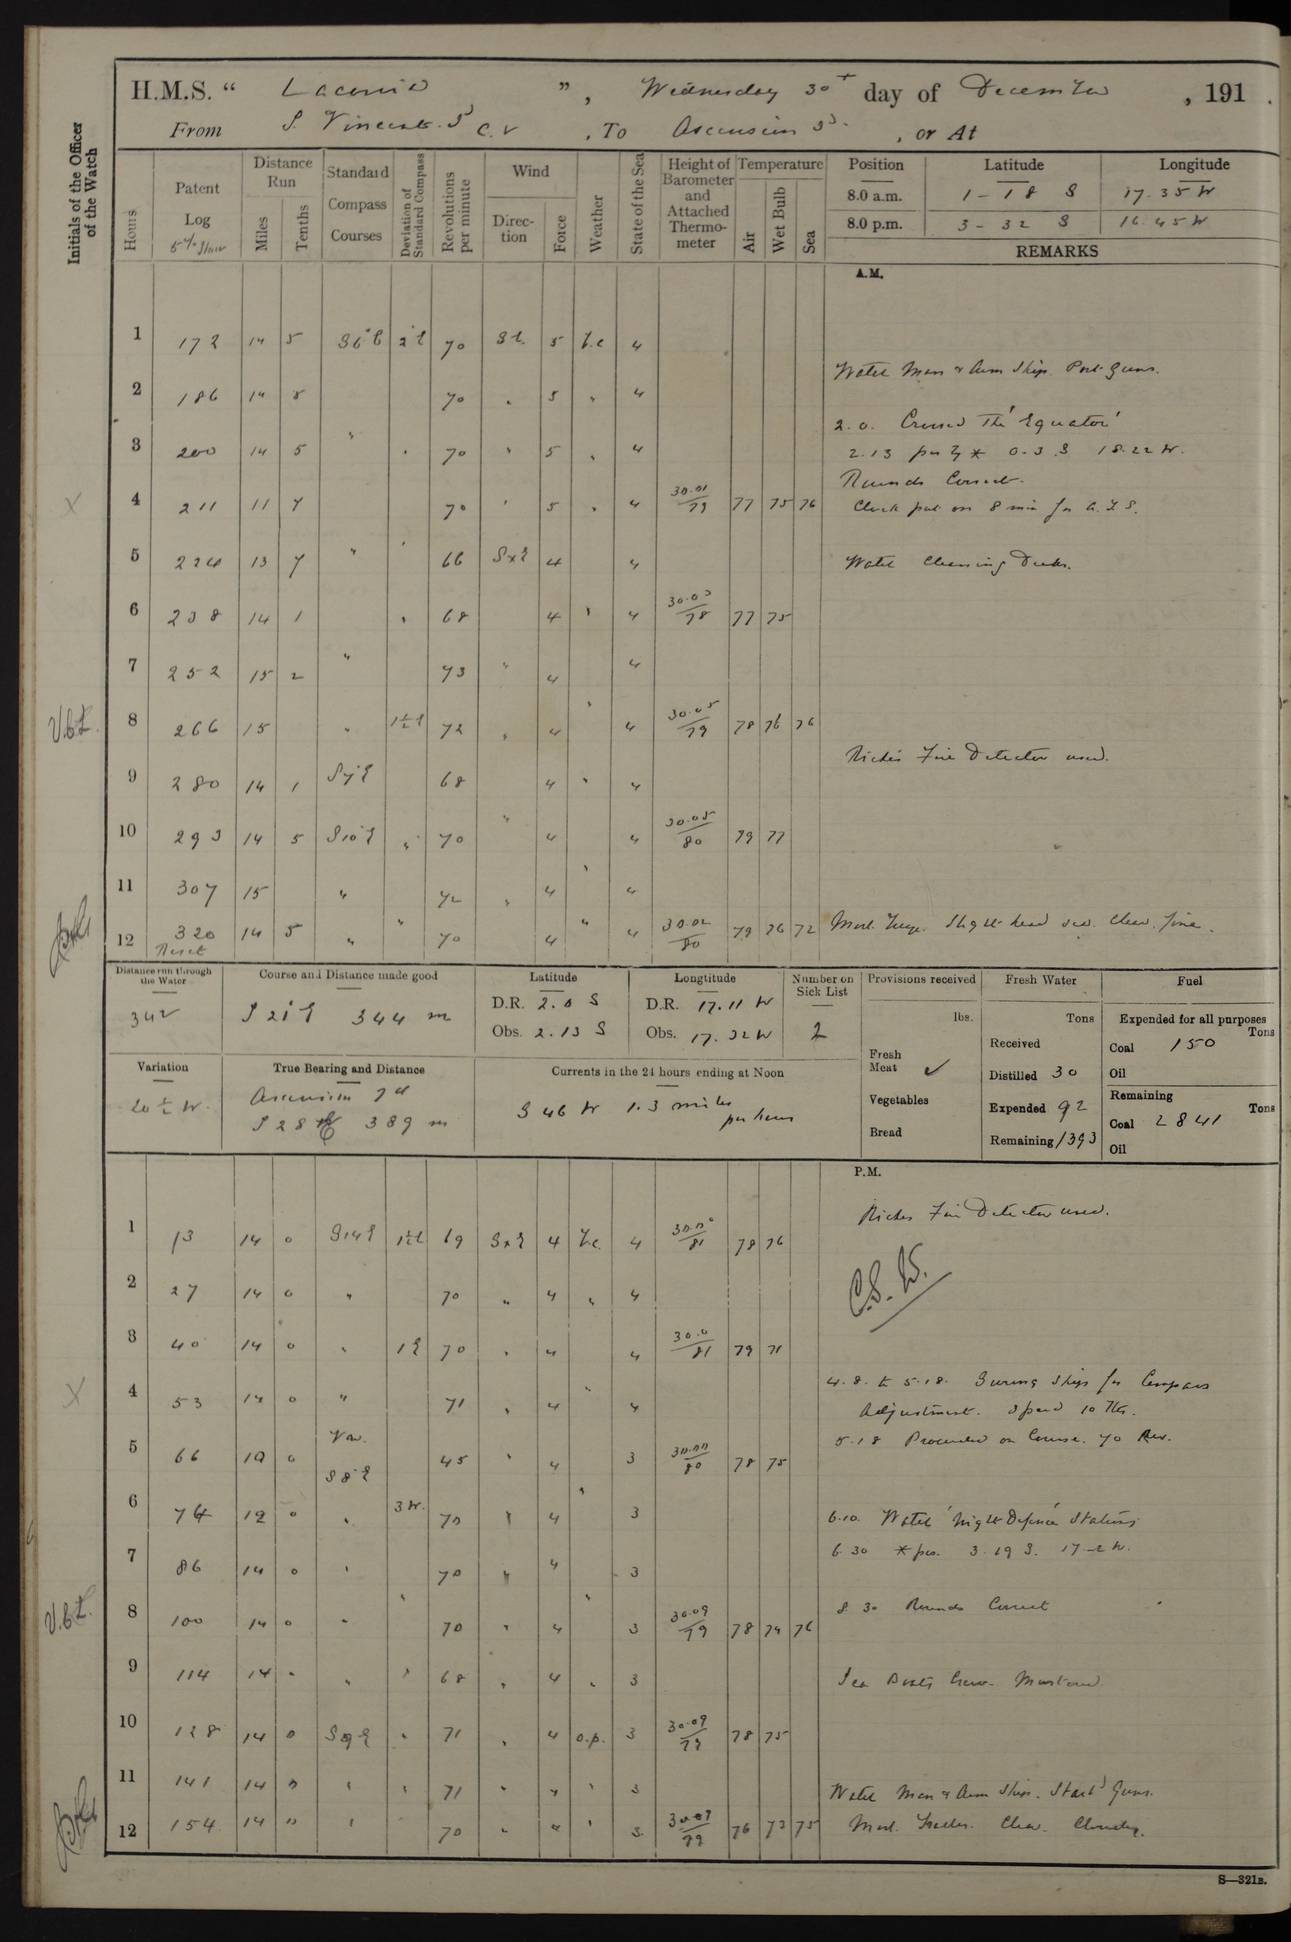 H.M.S. “ Laconia ”, Wednesday 30th day of December, 191 .
From S. Vincent. C.V , To Ascension Id. , or At
Initials of the Officer of the Watch
Hours
Patent Log
5% Slow
Distance Run
Miles
Tenths
Standard Compass Courses
Deviation of Standard Compass
Revolutions per minute
Wind
Direction
Force
Weather
State of the Sea
Height of Barometer and Attached Thermometer
Temperature
Air
Wet Bulb
Sea
Position Latitude Longitude
8.0 a.m. 1 - 18 S 17.35 W
8.0 p.m. 3 - 32 S 16.45 W
REMARKS
A.M.
1 172 14 5 S6°E 2°E 70 SE. 5 b.c 4
Watch Man & Arm Ship Port Guns.
2 186 14 5 70 " 5 " 4
2.0. Crossed The 'Equator'
3 200 14 5 " " 70 " 5 " 4
2.13 pos by * 0.3.S 18.22 W.
Rounds Correct.
4 211 11 7 70 " 5 " 4 30.01/79 77 75 76
Clock put on 8 min for A.T.S.
5 224 13 7 " " 66 SxE 4 4
Watch Cleaning Decks.
6 238 14 1 " 68 4 " 4 30.03/78 77 75
7 252 15 2 " 73 " 4 4
V.B.L.
8 266 15 " 1½E 72 " 4 " 4 30.05/79 78 76 76
Riches Fire Detector used.
9 280 14 1 S7°E 68 4 " 4
10 293 14 5 S10°E " 70 " 4 4 30.05/80 79 77
11 307 15 " 72 " 4 " 4
12 320 14 5 " " 70 4 " 4 30.02/80 79 76 72
Reset
Mod. Breeze. Slight head sea. Clear. fine.
Distance run through the Water
342
Course and Distance made good
S 21°E 344 m
Latitude
D.R. 2.0 S
Obs. 2.13 S
Longtitude
D.R. 17.11 W
Obs. 17.32 W
Number on Sick List
2
Provisions received
lbs.
Fresh Meat ✓
Vegetables
Bread
Fresh Water
Tons
Received
Distilled 30
Expended 92
Remaining 1393
Fuel
Expended for all purposes
Tons
Coal 150
Oil
Remaining
Tons
Coal 2841
Oil
Variation
20½ W.
True Bearing and Distance
Ascension Id
S 28 E 389 m
Currents in the 24 hours ending at Noon
S 46 W 1.3 miles per hour
P.M.
Riches Fire Detector used.
1 13 14 0 S14E 1½E 69 SxE 4 b.c. 4 30.00/81 78 76
2 27 14 0 " 70 " 4 " 4
3 40 14 0 " 1E 70 " 4 4 30.0/81 79 71
4 53 14 0 " 71 " 4 " 4
4.8. to 5.18. Swung Ship for Compass
Adjustment. Speed 10 Kts.
5 66 10 0 Var. S8°E 45 " 4 3 30.00/80 78 75
5.18 Proceeded on Course. 70 Rev.
6 74 12 0 " 3W. 70 " 4 " 3
6.10. Watch 'Night Defence' Stations
6.30 * pos. 3.19 S. 17-2 W.
7 86 14 0 " 70 " 4 3
V.B.L.
8 100 14 0 " " 70 " 4 " 3 30.09/79 78 74 76
8.30 Rounds Correct
9 114 14 " " " 68 " 4 " 3
Sea Boats Crew. Mustered
10 128 14 0 S9E " 71 " 4 o.p. 3 30.09/79 78 75
11 141 14 0 " " 71 " " " 3
Watch Man & Arm Ship. Starbd Guns.
12 154 14 " " 70 " " " 3 30.07/79 76 73 75
Mod. Trades. Clear. Cloudy.
S—321B.